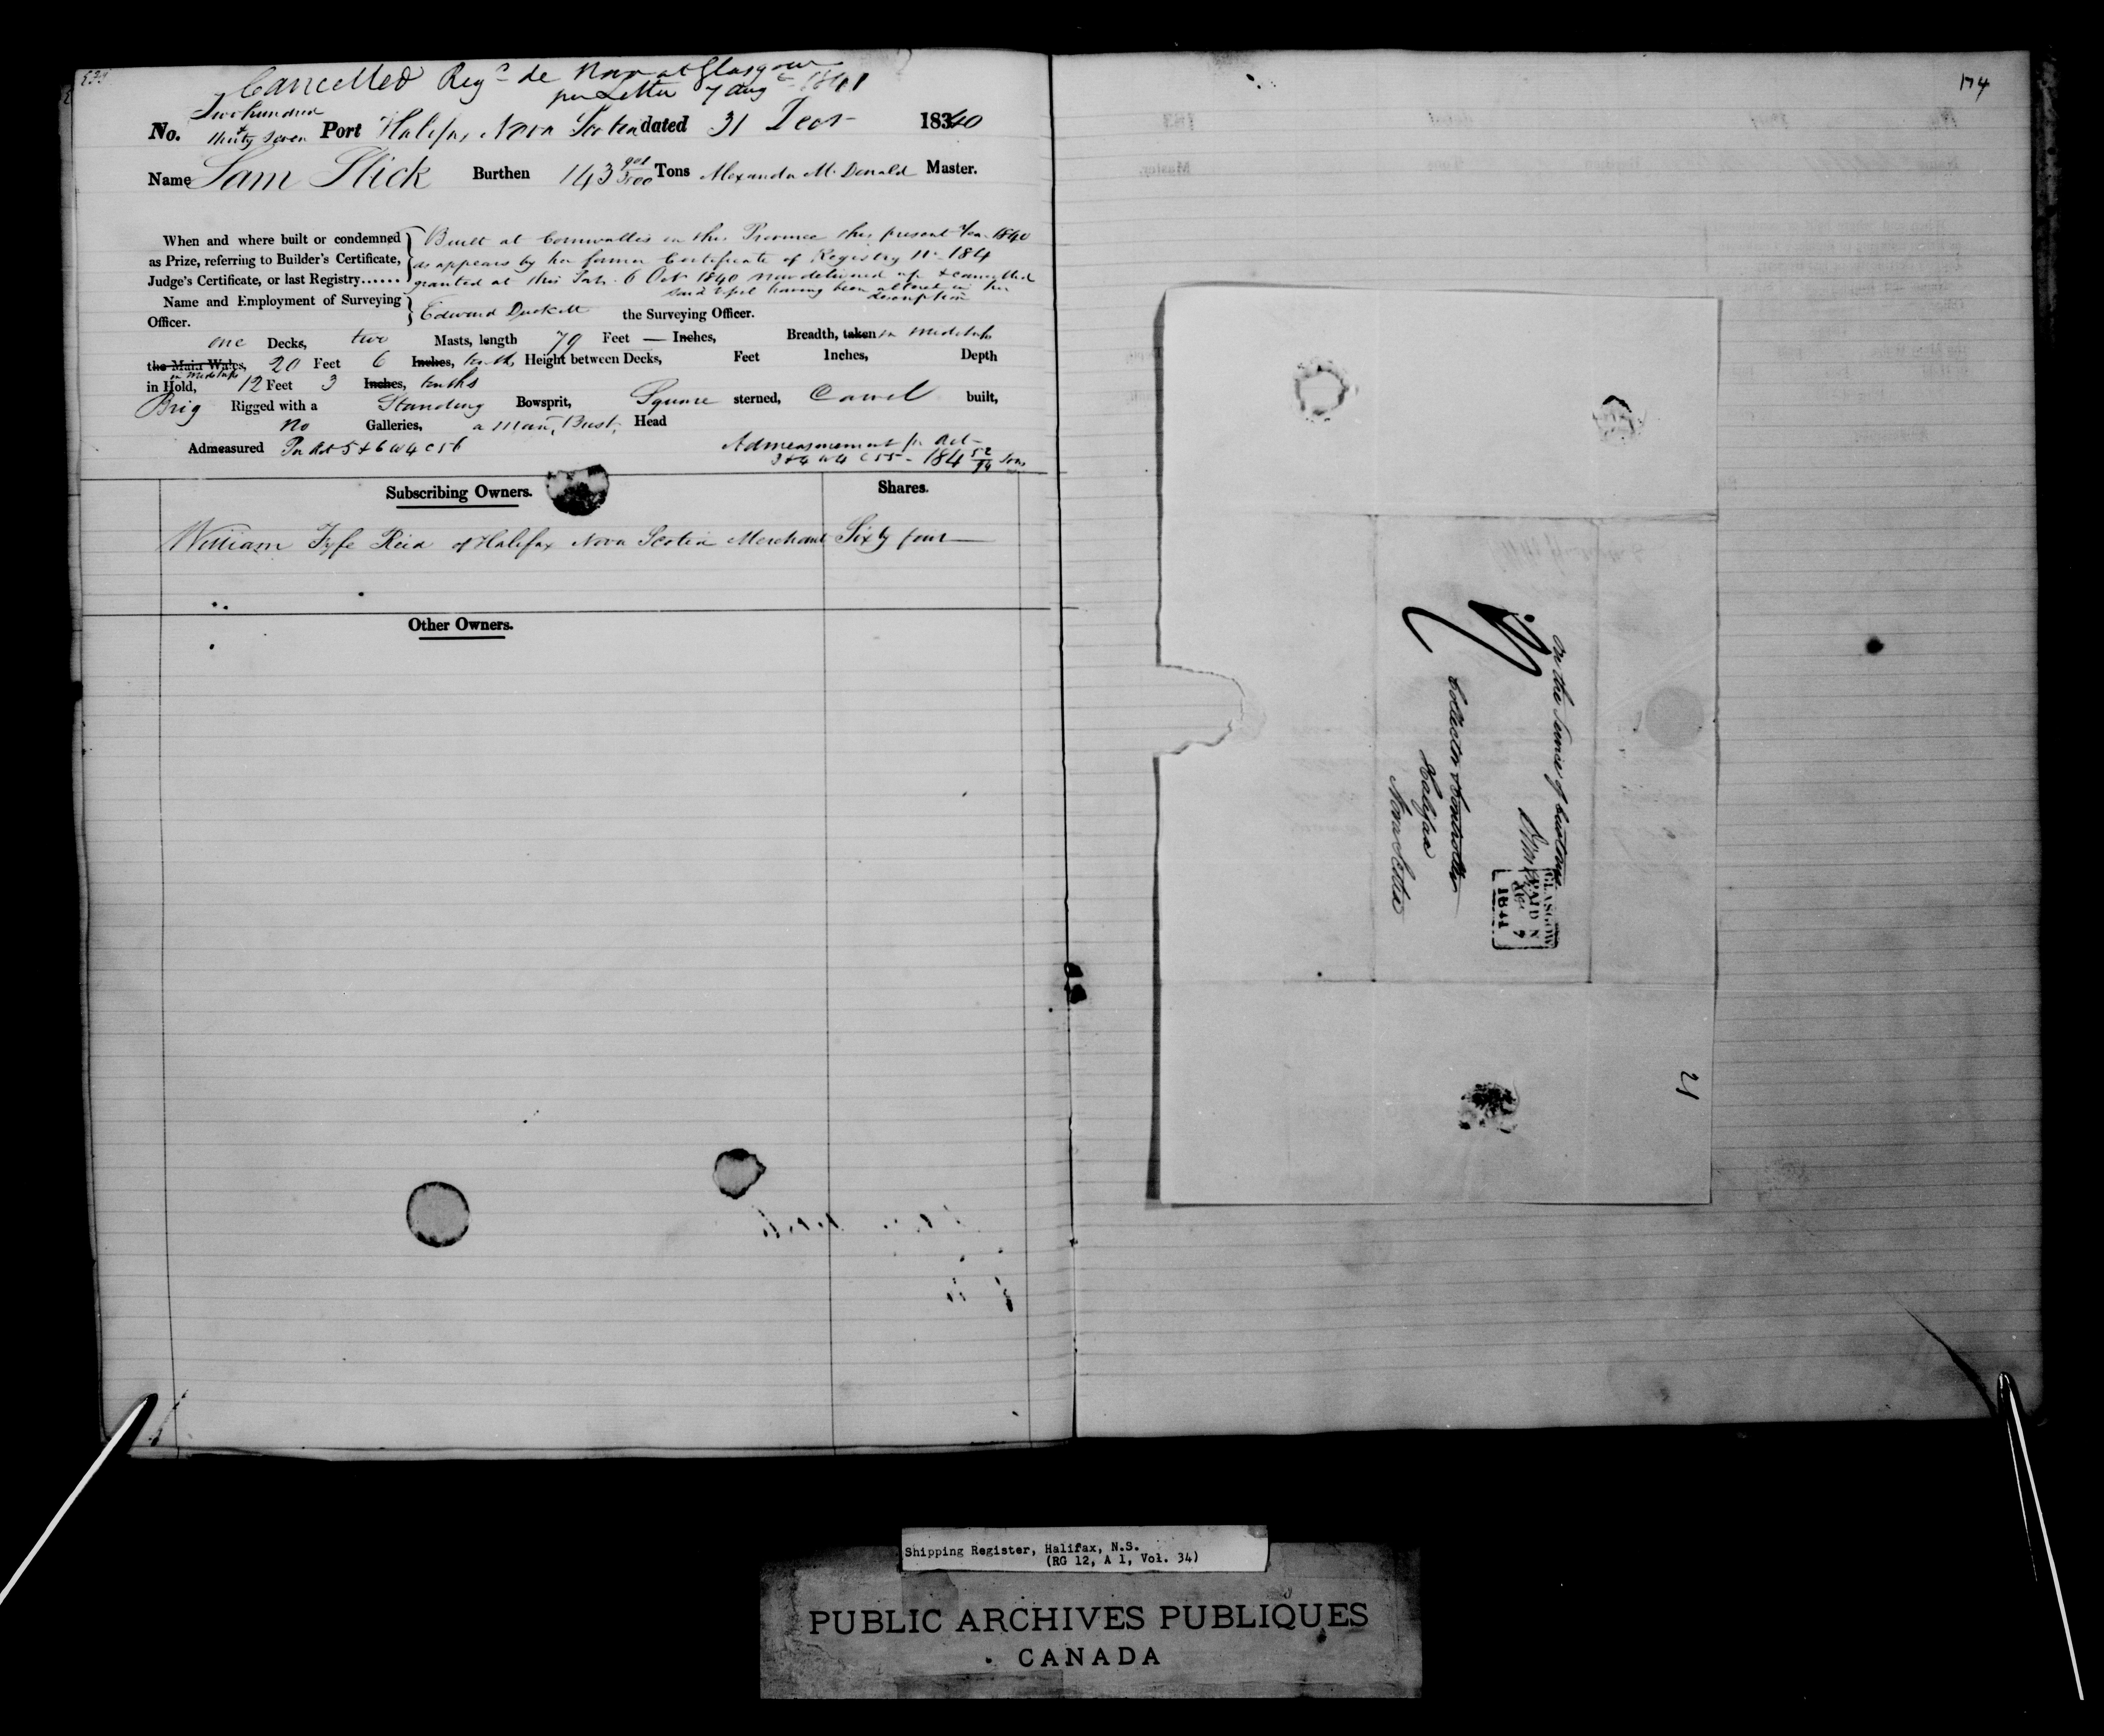 Cancelled Regd de Novo at Glasgow
per Letter 7 Aug 1841
Two hundred
No. thirty seven Port Halifax Nova Scotia dated 31 Decr 1840
Name Sam Slick Burthen 143 Tons Alexander McDonald Master.
When and where built or condemned
as Prize, referring to Builder's Certificate,
Judge's Certificate, or last Registry......
Built at Cornwallis in this Province this present Year 1840
as appears by her former Certificate of Registry No 184
granted at this Port 6 Octr 1840 now delivered up & cancelled
said Vessel having been altered in her
description
Name and Employment of Surveying
Officer.
Edward Duckett the Surveying Officer.
one Decks, two Masts, length 79 Feet — Inches, Breadth, taken in Midships
the Main Wales, 20 Feet 6 Inches, tenths, Height between Decks, Feet Inches, Depth
in Midships
in Hold, 12 Feet 3 Inches, tenths
Brig Rigged with a Standing Bowsprit, Square sterned, Carvel built,
no Galleries, a Man's Bust Head
Admeasured Per Act 5 & 6 W 4 C 56
Admeasurement pr Act
3 & 4 W 4 C 55 - 184 52/94 Tons
Subscribing Owners. Shares.
William Fyfe Reid of Halifax Nova Scotia Merchant Sixty four
Other Owners.
174
On the Service of Customs
GLASGOW
PAID
7
1841
Collector & Controller
Halifax
Nova Scotia
21
Shipping Register, Halifax, N.S.
(RG 12, A 1, Vol. 34)
PUBLIC ARCHIVES PUBLIQUES
CANADA